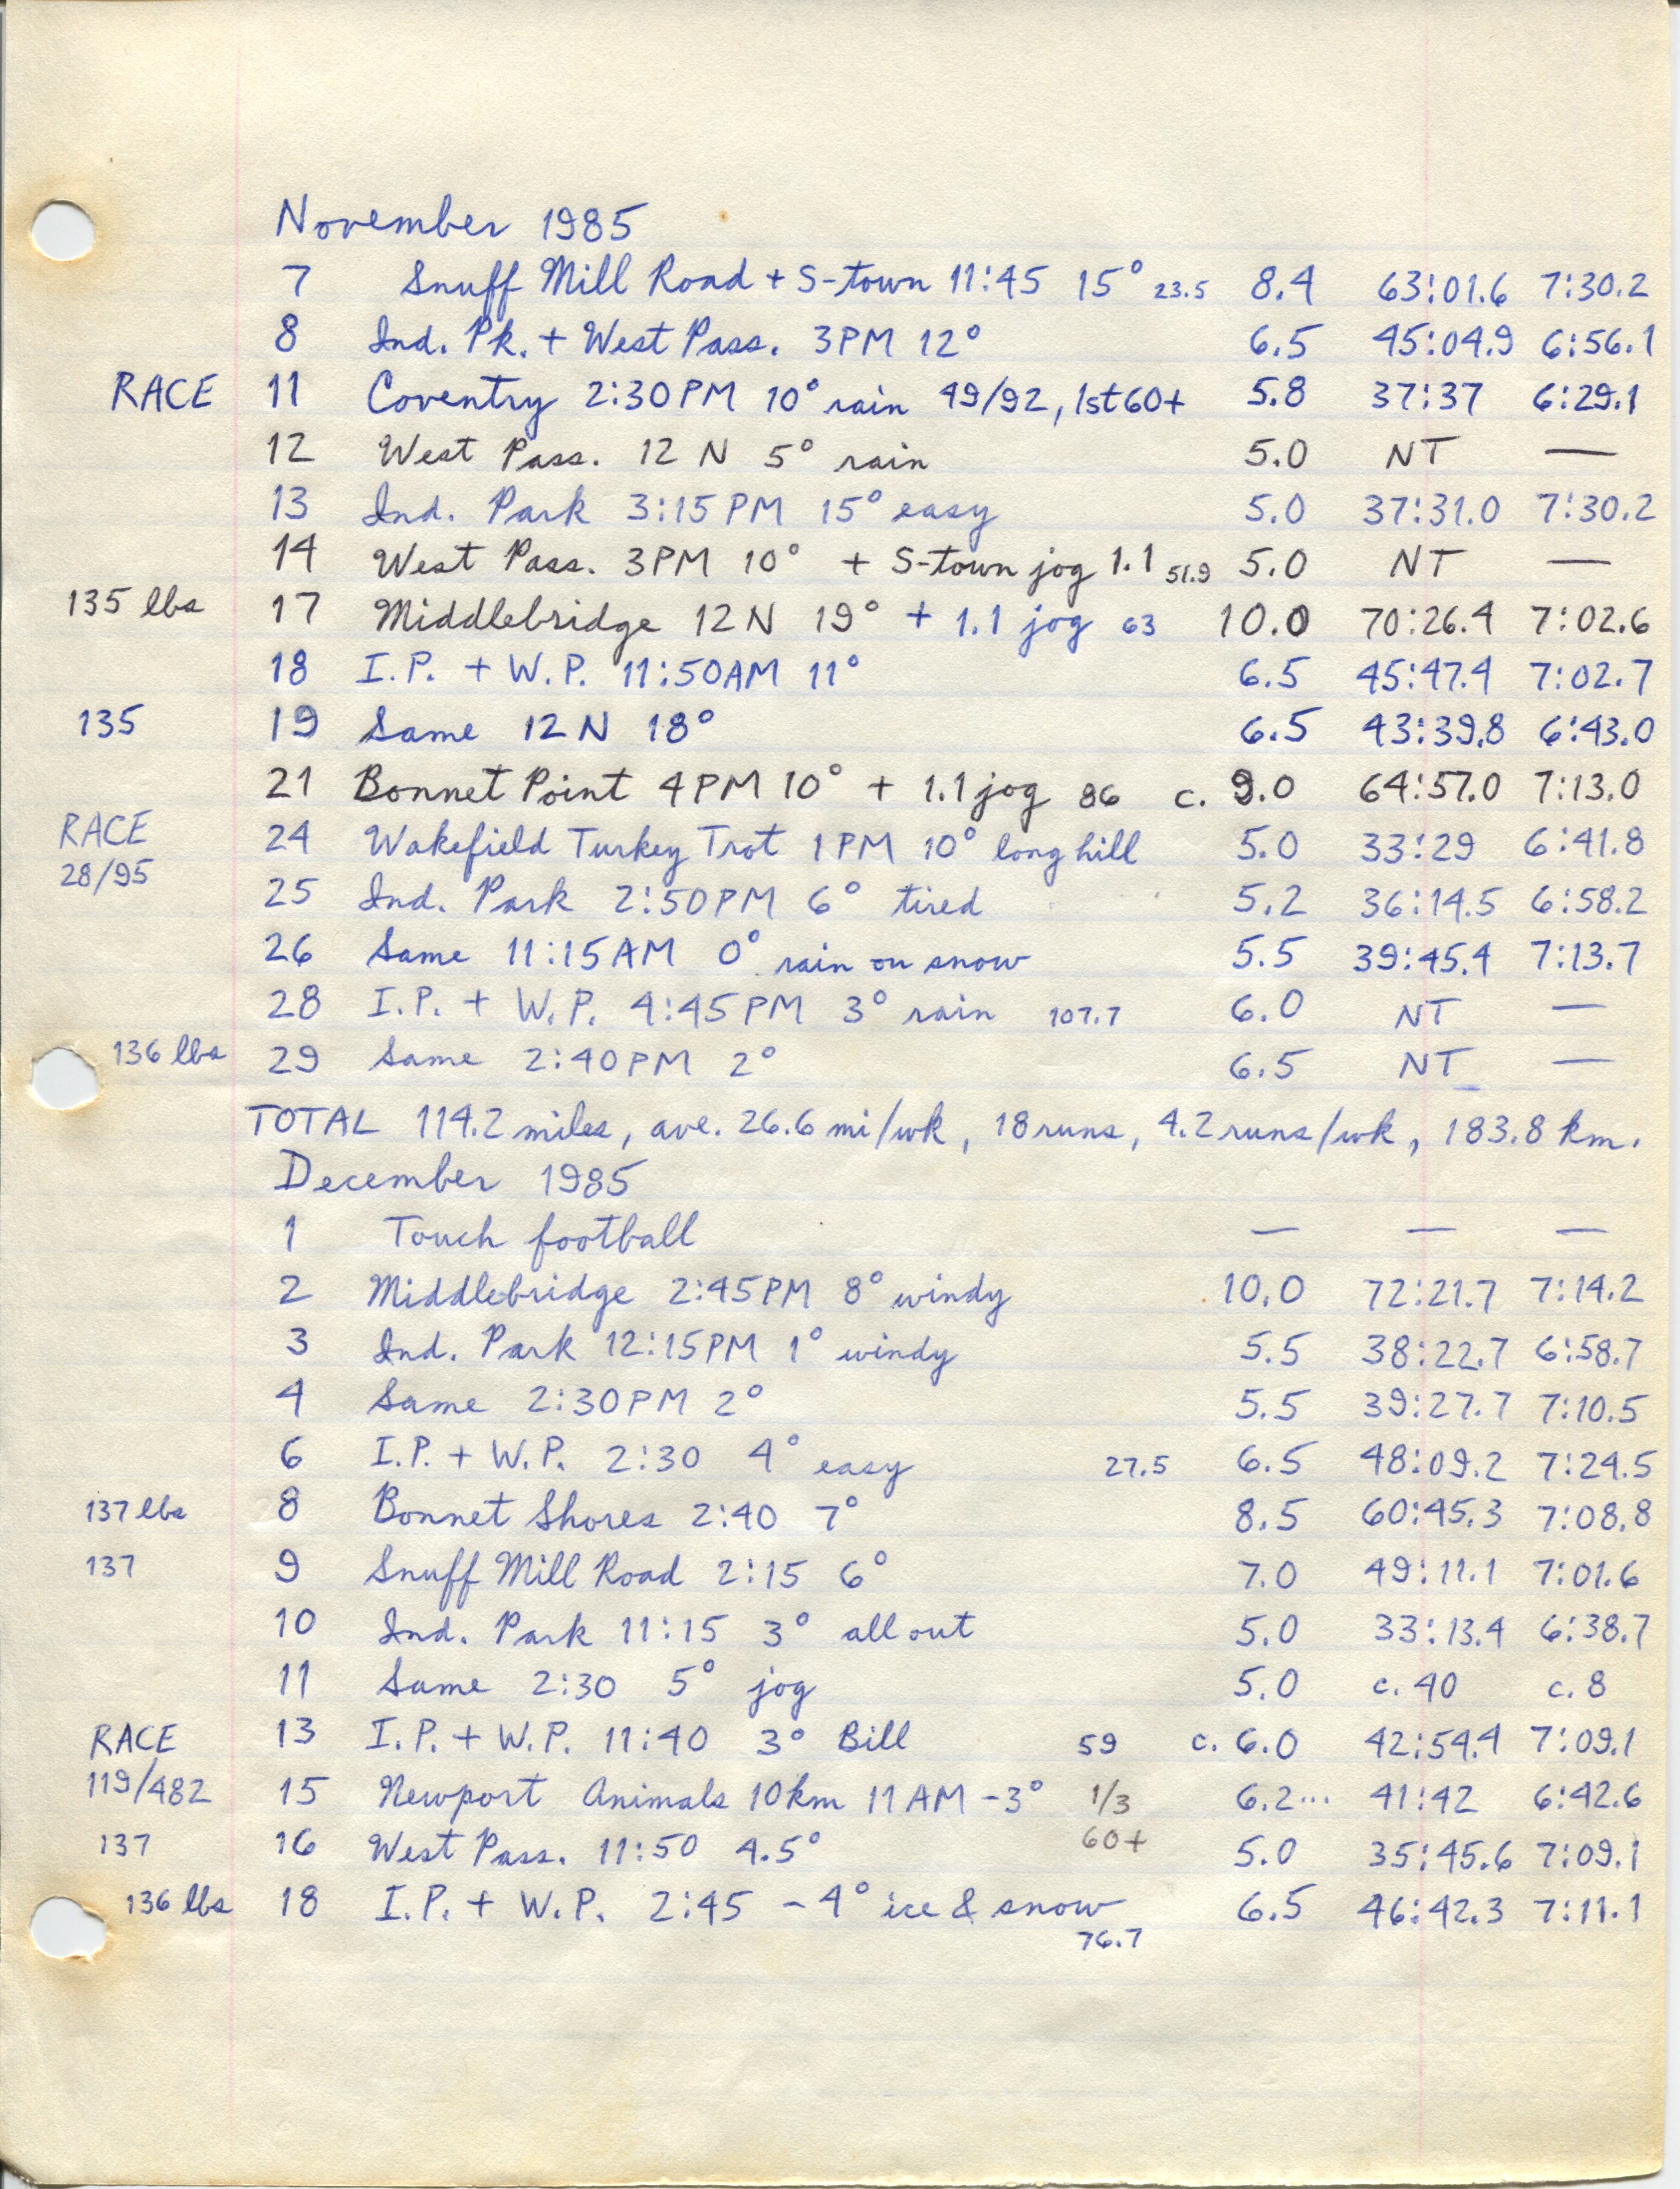 November 1985
7 Snuff Mill Road + S-town 11:45 15° 23.5 8.4 63:01.6 7:30.2
8 Ind. Pk. + West Pass. 3PM 12° 6.5 45:04.9 6:56.1
RACE 11 Coventry 2:30PM 10° rain 49/92, 1st 60+ 5.8 37:37 6:29.1
12 West Pass. 12 N 5° rain 5.0 NT —
13 Ind. Park 3:15 PM 15° easy 5.0 37:31.0 7:30.2
14 West Pass. 3PM 10° + S-town jog 1.1 51.9 5.0 NT —
135 lbs 17 Middlebridge 12 N 19° + 1.1 jog 63 10.0 70:26.4 7:02.6
18 I.P. + W.P. 11:50AM 11° 6.5 45:47.4 7:02.7
135 19 Same 12 N 18° 6.5 43:39.8 6:43.0
21 Bonnet Point 4PM 10° + 1.1 jog 86 c. 9.0 64:57.0 7:13.0
RACE 28/95 24 Wakefield Turkey Trot 1 PM 10° long hill 5.0 33:29 6:41.8
25 Ind. Park 2:50PM 6° tired 5.2 36:14.5 6:58.2
26 Same 11:15AM 0° rain on snow 5.5 39:45.4 7:13.7
28 I.P. + W.P. 4:45PM 3° rain 107.7 6.0 NT —
136 lbs 29 Same 2:40PM 2° 6.5 NT —
TOTAL 114.2 miles, ave. 26.6 mi/wk, 18 runs, 4.2 runs/wk, 183.8 km.
December 1985
1 Touch football — — —
2 Middlebridge 2:45PM 8° windy 10.0 72:21.7 7:14.2
3 Ind. Park 12:15PM 1° windy 5.5 38:22.7 6:58.7
4 Same 2:30PM 2° 5.5 39:27.7 7:10.5
6 I.P. + W.P. 2:30 4° easy 27.5 6.5 48:09.2 7:24.5
137 lbs 8 Bonnet Shores 2:40 7° 8.5 60:45.3 7:08.8
137 9 Snuff Mill Road 2:15 6° 7.0 49:11.1 7:01.6
10 Ind. Park 11:15 3° all out 5.0 33:13.4 6:38.7
11 Same 2:30 5° jog 5.0 c. 40 c. 8
13 I.P. + W.P. 11:40 3° Bill 59 c. 6.0 42:54.4 7:09.1
RACE 119/482 15 Newport Animals 10km 11 AM -3° 1/3 60+ 6.2... 41:42 6:42.6
137 16 West Pass. 11:50 4.5° 5.0 35:45.6 7:09.1
136 lbs 18 I.P. + W.P. 2:45 -4° ice & snow 6.5 46:42.3 7:11.1
76.7